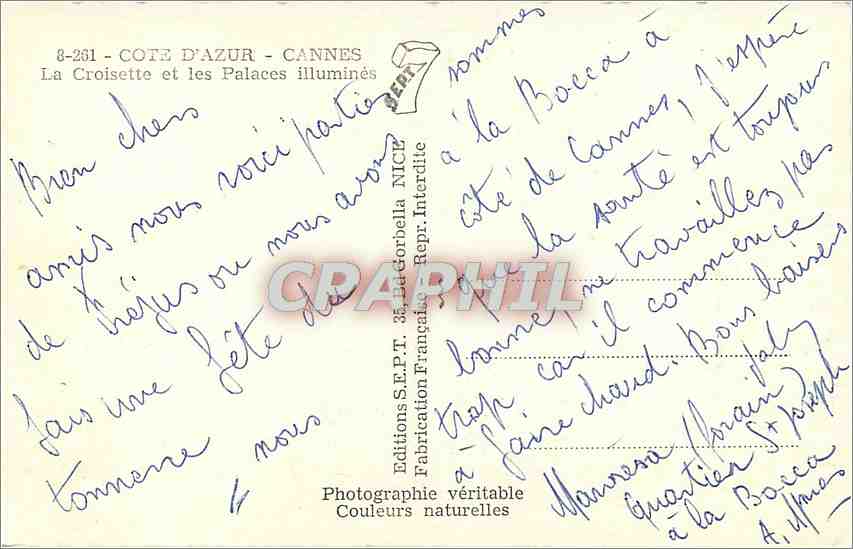 8-261 - COTE D'AZUR - CANNES
La Croisette et les Palaces illuminés
SEPT
Bien chers
amis nous voici partie
de Fréjus ou nous avons
fais une fête du
tonnerre nous
sommes
à la Bocca à
côté de Cannes, j'espère
que la santé est toujours
bonne, ne travaillez pas
trop car il commence
à faire chaud. Bons baisers
Quartier St Joseph
à la Bocca
A. Mmes
Editions S.E.P.T. 35, Bd Gorbella NICE
Fabrication Française - Repr. Interdite
CRAPHIL
Photographie véritable
Couleurs naturelles